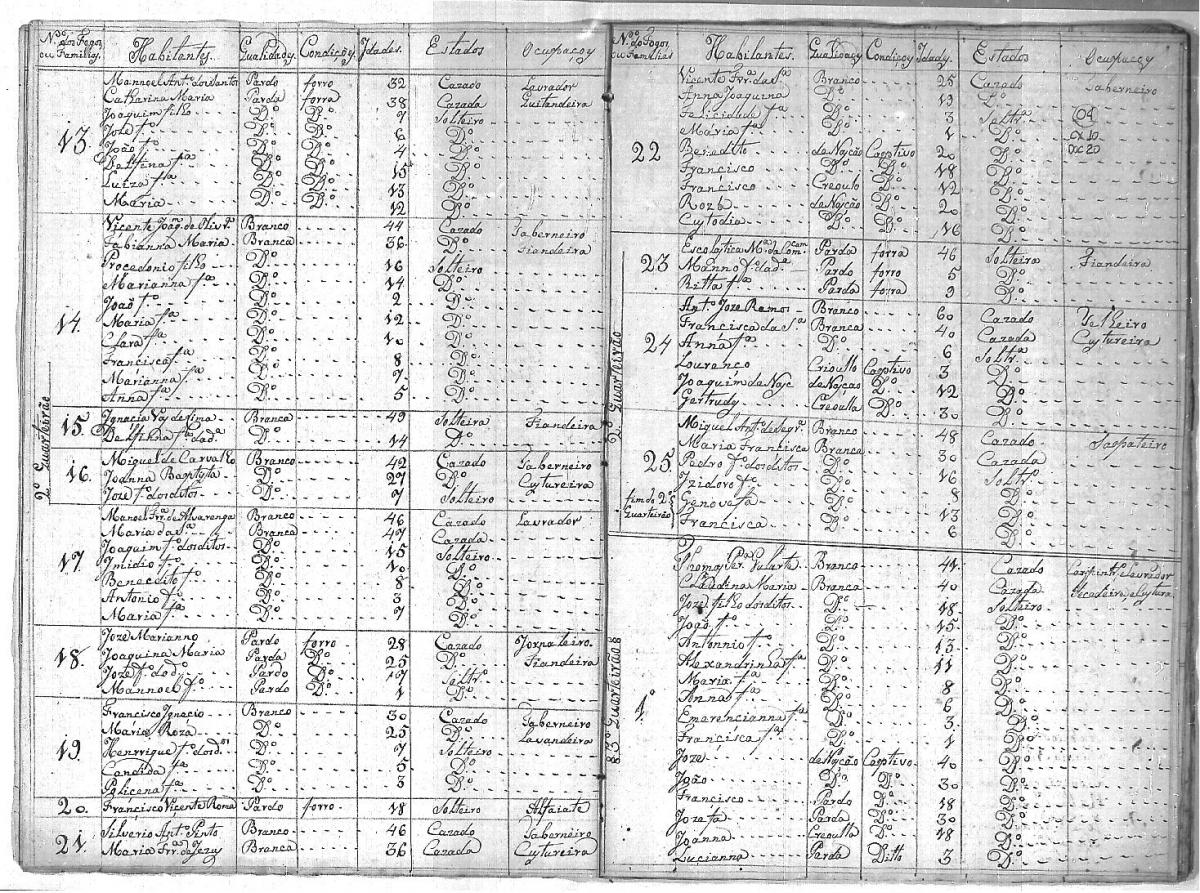 Nos. dos Fogos ou Familias. Habitantes. Qualidades. Condições. Idades. Estados Ocupações
Mannoel Anto. dos Santos Pardo forro 32 Cazado Lavrador
Catharina Maria Parda forra 38 Cazada Quitandeira
Joaquim filho Do. Do. 7 Solteiro
José fo. Do. Do. 6 Do.
13. João fo. Do. Do. 4 Do.
Delfina fa. Do. Do. 15 Do.
Luiza fa. Do. Do. 13 Do.
Maria Do. Do. 12 Do.
Vicente Joaqm. de Olivra. Branco 44 Cazado Taberneiro
Fabianna Maria Branca 36 Do. Fiandeira
Procedonio filho Do. 16 Solteiro
Marianna fa. Do. 14 Do.
João fo. Do. 2 Do.
14. Maria fa. Do. 12 Do.
Clara fa. Do. 10 Do.
Francisca fa. Do. 8 Do.
Marianna fa. Do. 7 Do.
Anna fa. Do. 5 Do.
2o. Quarteirão
15. Ignacia Vaz de Lima Branca 49 Solteira Fiandeira
Delfinna fa. dada. Do. 14 Do.
Miguel de Carvalho Branco 42 Cazado Taberneiro
16. Joanna Baptista Do. 27 Do. Custureira
José fo. dos ditos Do. 7 Solteiro
Manoel Frra. de Alvarenga Branco 46 Cazado Lavrador
Maria da Sa. Branca 47 Cazada
Joaquim fo. dos ditos Do. 15 Solteiro
17. Imidio fo. Do. 10 Do.
Benedito fo. Do. 8 Do.
Antonio fo. Do. 3 Do.
Maria fa. Do. 7 Do.
Joze Marianno Pardo forro 28 Cazado
18. Joaquina Maria Parda Do. 25 Do. Fiandeira
Joze fo. dos do. Pardo Do. Soltro.
Mannoel fo. Pardo Do. 1 Do.
Francisco Ignacio Branco 30 Cazado Taberneiro
Maria Roza Do. 25 Do. Lavandeira
19. Henrrique fo. dos dos. Do. 7 Solteiro
Candida fa. Do. 5 Do.
Policena fa. Do. 3 Do.
20. Francisco Vicente Roma Pardo forro 18 Solteiro Alfaiate
21. Silverio Anto. Pinto Branco 46 Cazado Taberneiro
Maria Frra. de Jezus Branca 36 Cazada Custureira
Nos. dos Fogos ou Familias Habitantes. Qualidades Condições Idades. Estados Ocupações
Vicente Frra. da Sa. Branco 25 Cazado Taberneiro
Anna Joaquina Do. 13
Felicidade fa. Do. 3 Soltra. 04
Maria fa. Do. 1 Do. cx 10
22 Benedito de Nação Captivo 20 Do. Dx 20
Francisco Do. Do. 18 Do.
Francisco Creoulo Do. 12 Do.
Roza de Nação Do. 20 Do.
Custodia Do. Do. 16 Do.
Escolastica Ma. da Parda forra 46 Solteira Fiandeira
23 Manno fo. dada. Pardo forro 5 Do.
Ritta fa. Parda forra 3 Do.
2o. Quarteirão
Anto. Joze Ramos Branco 60 Cazado
Francisca da Sa. Branca 40 Cazada Custureira
24 Anna fa. Do. 6 Soltra.
Lourenço Crioullo Captivo 3 Do.
Joaquim de Naç. de Nação Do. 12 Do.
Gertrudes Creoulla Do. 30 Do.
Miguel Anto. de Branco 48 Cazado Sapateiro
Maria Francisca Branca 30 Cazada
25. Pedro fo. dos ditos Do. 16 Soltro.
Izidoro fo. Do. 8 Do.
fim do 2o. Quarteirão Genove fa. Do. 13 Do.
Francisca Do. 6 Do.
Thomas Branco 41 Cazado Lavrador
Claudina Maria Branca 40 Cazada Custura
Joze filho dos ditos Do. 18 Solteiro
João fo. Do. 15 Do.
Antonnio fo. Do. 13 Do.
Alexandrinna fa. Do. 11 Do.
Maria fa. Do. 8 Do.
Anna fa. Do. 6 Do.
3o. Quarteirão
1o. Emerencianna fa. Do. 3 Do.
Francisca fa. Do. 1 Do.
Joze de Nação Captivo 40 Do.
João Do. Do. 30 Do.
Francisco Pardo Do. 18 Do.
Jozefa Parda Do. 30 Do.
Joanna Creoulla Do. 18 Do.
Lucianna Parda Ditto 3 Do.